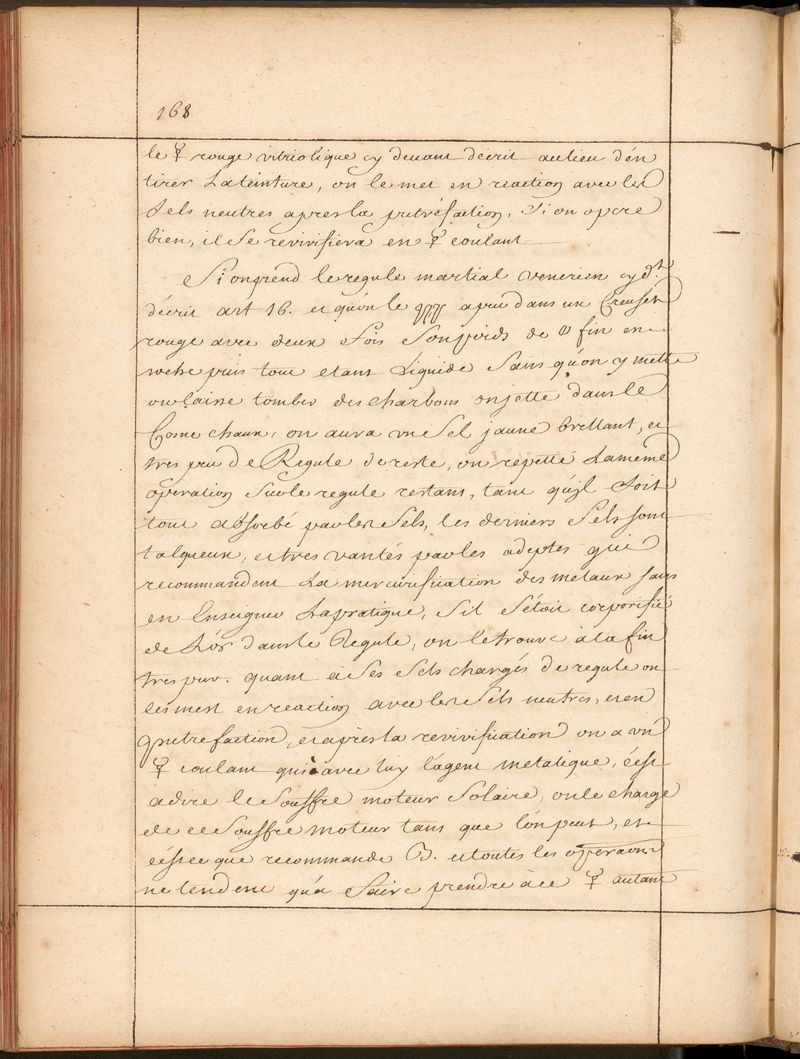 168
le ☿ rouge vitriolique cy devant décrit au lieu d'én
tirer La teinture, on le met en reaction avec les
Sels neutres aprés la putréfaction, Si on opere
bien, il Se revivifiera en ☿ coulant
Si on prend le regule martial venerien cy d.t
décrit art 16. et qu'on le apeu dans un Creuset
rouge avec deux fois Son poids de fin en
puis tout etant Liquide Sans qu'on y mette
ou laisse tomber des charbons on jette dans le
Cosne chaux, on aura un Sel jaune brillant, et
tres peu de Regule de reste, on repette La meme
operation Sur le regule restant, tant qu'il Soit
tout absorbé par les Sels, les derniers Sels sont
talqueux, et tres vantés par les adeptes qui
recommandent La mercurification des metaux sans
en Enseigner La pratique, Sil S'étoit corporifié
de L'ór dans le Regule, on le trouve à la fin
tres pur. quant à Ses Sels chargés de regule on
les met en reaction avec les Sels neutres, et en
putrefaction, et aprés la revivification on a un
☿ coulant qui a avec luy l'agent metalique, c'est
a dire le Souffre moteur Solaire, on le charge
de ce Souffre moteur tant que l'on peut, et
c'ést ce que recommande B. et toutes les operaons
ne tendent qu'a faire prendre à ce ☿ autant